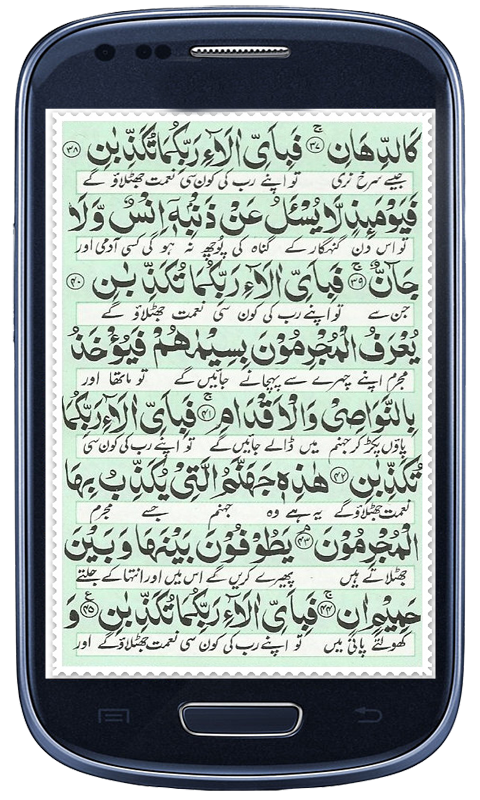 كَالدِّهَانِ ۚ﴿۳۷﴾ فَبِاَيِّ اٰلَآءِ رَبِّكُمَا تُكَذِّبٰنِ ﴿۳۸﴾
جیسے سرخ نری تو اپنے رب کی کون سی نعمت جھٹلاؤ گے
فَيَوْمَىِٕذٍ لَّا يُسْـَٔلُ عَنْ ذَنْۢبِهٖۤ اِنْسٌ وَّ لَا
تو اس دن گنہگار کے گناہ کی پوچھ نہ ہو گی کسی آدمی اور
جَآنٌّ ۚ﴿۳۹﴾ فَبِاَيِّ اٰلَآءِ رَبِّكُمَا تُكَذِّبٰنِ ﴿۴۰﴾
جن سے تو اپنے رب کی کون سی نعمت جھٹلاؤ گے
يُعْرَفُ الْمُجْرِمُوْنَ بِسِيْمٰهُمْ فَيُؤْخَذُ
مجرم اپنے چہرے سے پہچانے جائیں گے تو ماتھا اور
بِالنَّوَاصِيْ وَ الْاَقْدَامِ ۚ﴿۴۱﴾ فَبِاَيِّ اٰلَآءِ رَبِّكُمَا
پاؤں پکڑ کر جہنم میں ڈالے جائیں گے تو اپنے رب کی کون سی
تُكَذِّبٰنِ ﴿۴۲﴾ هٰذِهٖ جَهَنَّمُ الَّتِيْ يُكَذِّبُ بِهَا
نعمت جھٹلاؤ گے یہ ہے وہ جہنم جسے مجرم
الْمُجْرِمُوْنَ ۘ﴿۴۳﴾ يَطُوْفُوْنَ بَيْنَهَا وَ بَيْنَ
جھٹلاتے ہیں پھیرے کریں گے اس میں اور انتہا کے جلتے
حَمِيْمٍ اٰنٍ ۚ﴿۴۴﴾ فَبِاَيِّ اٰلَآءِ رَبِّكُمَا تُكَذِّبٰنِ ﴿۴۵﴾ وَ
کھولتے پانی میں تو اپنے رب کی کون سی نعمت جھٹلاؤ گے اور